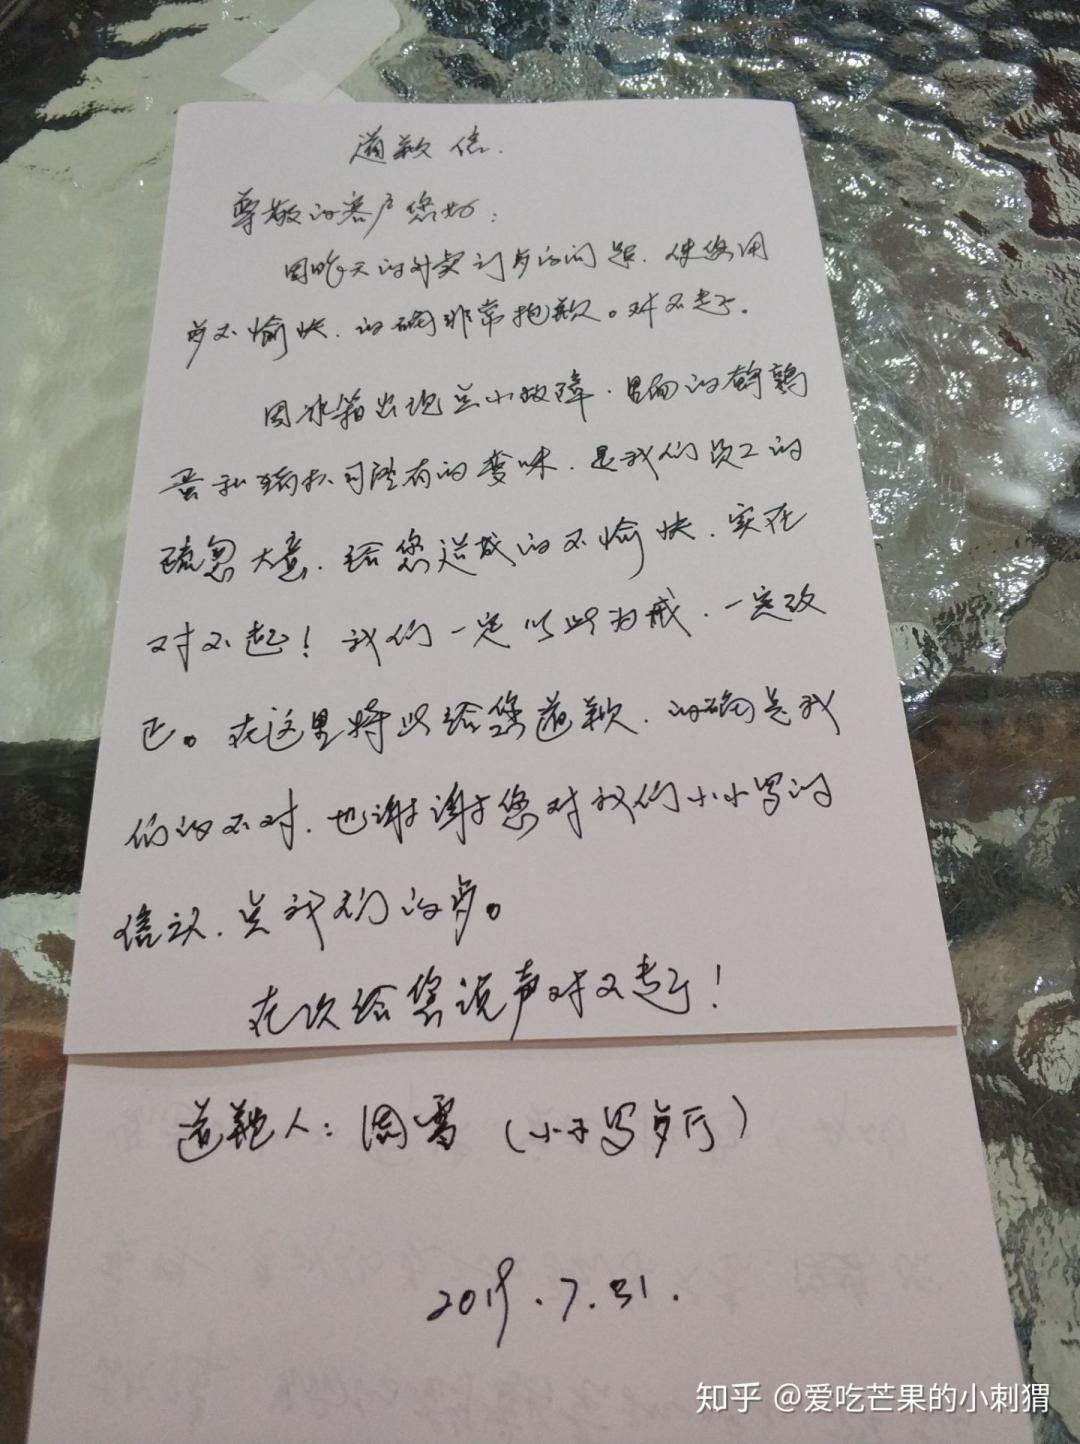 道歉信.
尊敬的客户您好:
因昨天的外卖订歺的问题、使您用
歺不愉快、的确非常抱歉。对不起。
因冰箱出现点小故障、里面的鹌鹑
蛋和有的变味、是我们员工的
疏忽大意、给您造成的不愉快、实在
对不起！我们一定以此为戒、一定改
正。在这里特此给您道歉、的确是我
们的不对、也谢谢您对我们小小写的
信认、点我们的歺。
在次给您说声对不起！
道歉人: 周雪 (小小写歺厅)
2019.7.31.
知乎 @爱吃芒果的小刺猬